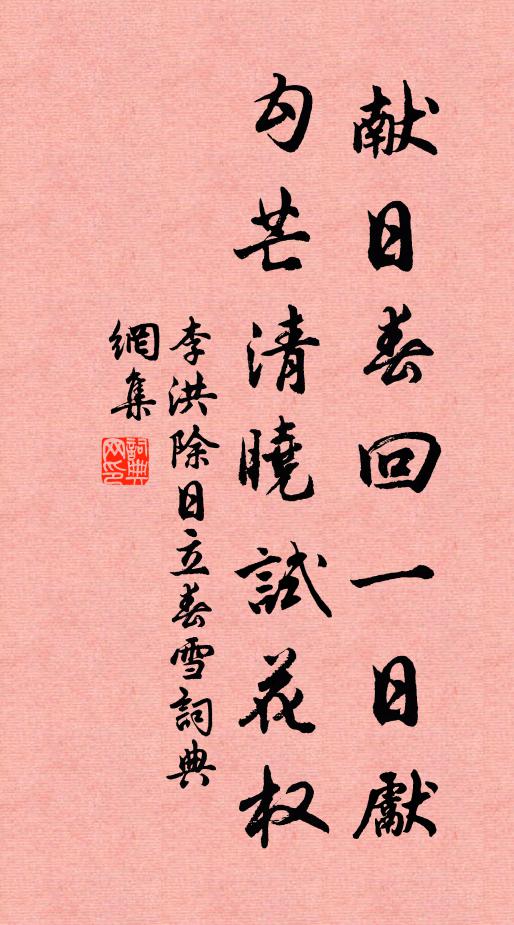 献日春回一日獻
勾芒清曉試花权
李洪除日立春雪詞典
網集
詞典
网印